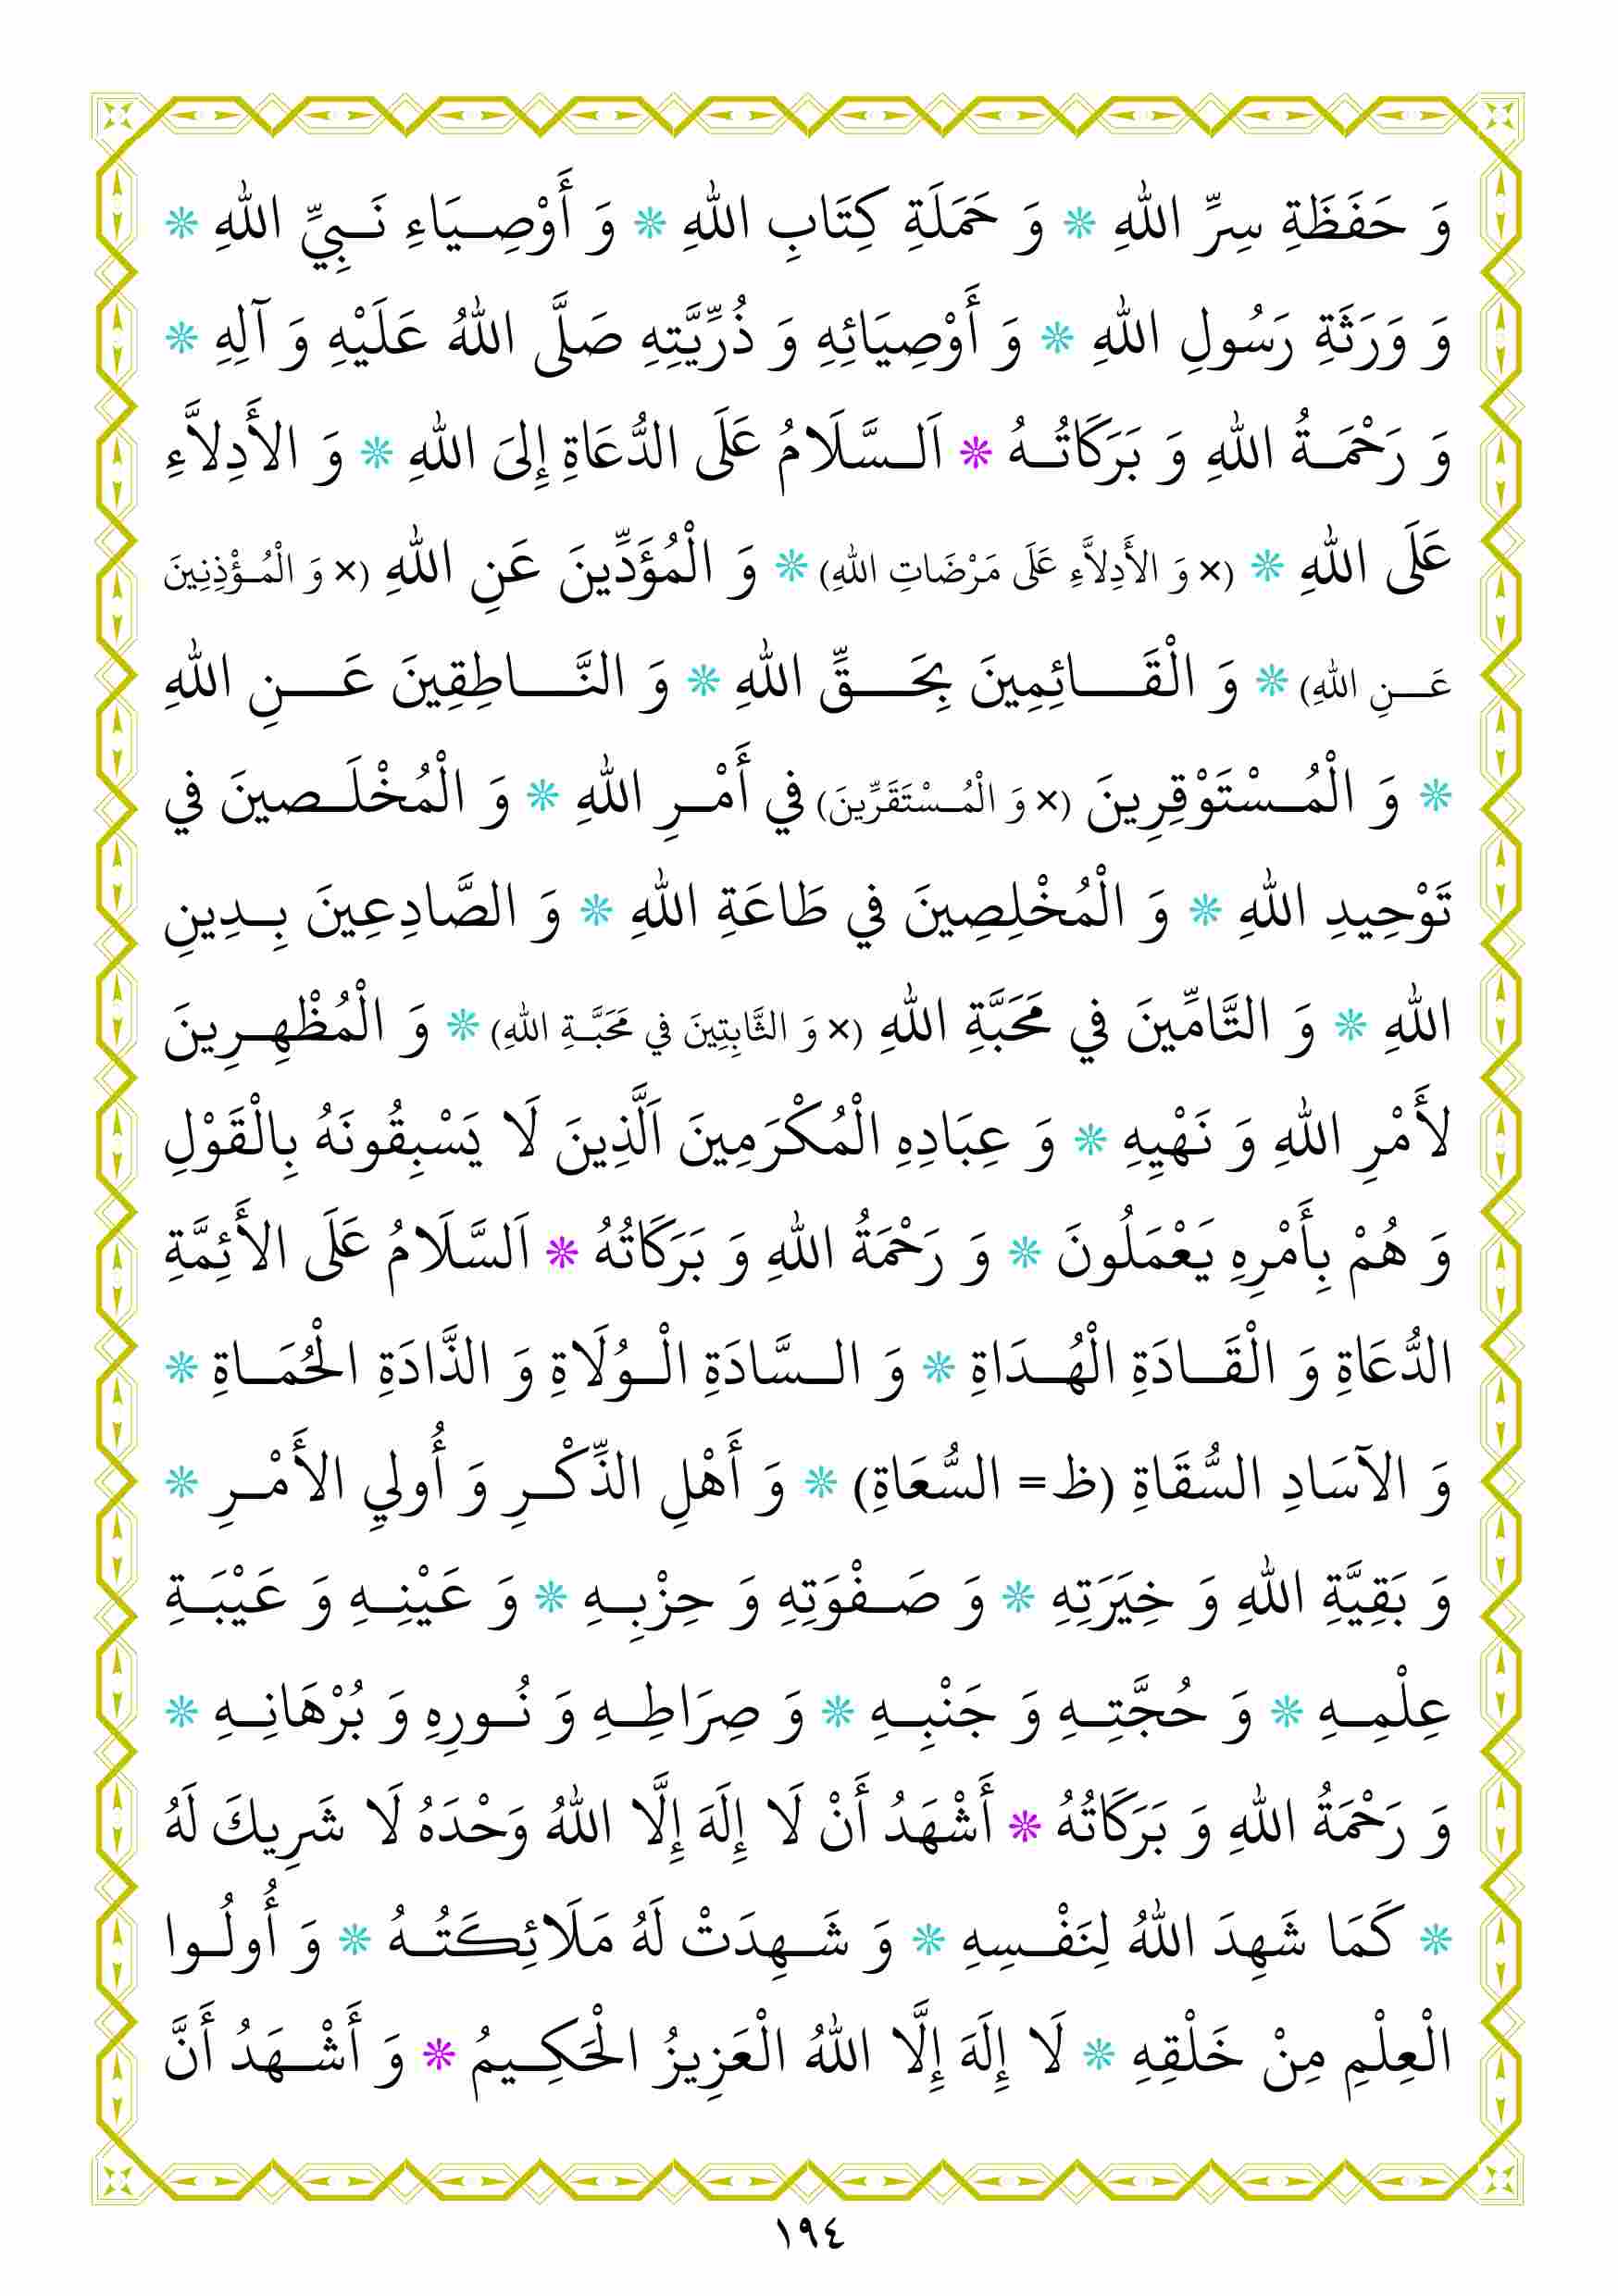 وَ حَفَظَةِ سِرِّ اللهِ * وَ حَمَلَةِ كِتَابِ اللهِ * وَ أَوْصِيَاءِ نَبِيِّ اللهِ *
وَ وَرَثَةِ رَسُولِ اللهِ * وَ أَوْصِيَائِهِ وَ ذُرِّيَّتِهِ صَلَّى اللهُ عَلَيْهِ وَ آلِهِ *
وَ رَحْمَةُ اللهِ وَ بَرَكَاتُهُ * اَلسَّلَامُ عَلَى الدُّعَاةِ إِلىَ اللهِ * وَ الأَدِلاَّءِ
عَلَى اللهِ * (× وَ الأَدِلاَّءِ عَلَى مَرْضَاتِ اللهِ) * وَ الْمُؤَدِّينَ عَنِ اللهِ (× وَ الْمُؤْذِنِينَ
عَنِ اللهِ) * وَ الْقَائِمِينَ بِحَقِّ اللهِ * وَ النَّاطِقِينَ عَنِ اللهِ
* وَ الْمُسْتَوْقِرِينَ (× وَ الْمُسْتَقَرِّينَ) في أَمْرِ اللهِ * وَ الْمُخْلَصينَ في
تَوْحِيدِ اللهِ * وَ الْمُخْلِصِينَ في طَاعَةِ اللهِ * وَ الصَّادِعِينَ بِدِينِ
اللهِ * وَ التَّامِّينَ في مَحَبَّةِ اللهِ (× وَ الثَّابِتِينَ في مَحَبَّةِ اللهِ) * وَ الْمُظْهِرِينَ
لأَمْرِ اللهِ وَ نَهْيِهِ * وَ عِبَادِهِ الْمُكْرَمِينَ اَلَّذِينَ لَا يَسْبِقُونَهُ بِالْقَوْلِ
وَ هُمْ بِأَمْرِهِ يَعْمَلُونَ * وَ رَحْمَةُ اللهِ وَ بَرَكَاتُهُ * اَلسَّلَامُ عَلَى الأَئِمَّةِ
الدُّعَاةِ وَ الْقَادَةِ الْهُدَاةِ * وَ السَّادَةِ الْوُلَاةِ وَ الذَّادَةِ الْحُمَاةِ *
وَ الآسَادِ السُّقَاةِ (ظ= السُّعَاةِ) * وَ أَهْلِ الذِّكْرِ وَ أُولِي الأَمْرِ *
وَ بَقِيَّةِ اللهِ وَ خِيَرَتِهِ * وَ صَفْوَتِهِ وَ حِزْبِهِ * وَ عَيْنِهِ وَ عَيْبَةِ
عِلْمِهِ * وَ حُجَّتِهِ وَ جَنْبِهِ * وَ صِرَاطِهِ وَ نُورِهِ وَ بُرْهَانِهِ *
وَ رَحْمَةُ اللهِ وَ بَرَكَاتُهُ * أَشْهَدُ أَنْ لَا إِلَهَ إِلَّا اللهُ وَحْدَهُ لَا شَرِيكَ لَهُ
* كَمَا شَهِدَ اللهُ لِنَفْسِهِ * وَ شَهِدَتْ لَهُ مَلَائِكَتُهُ * وَ أُولُوا
الْعِلْمِ مِنْ خَلْقِهِ * لَا إِلَهَ إِلَّا اللهُ الْعَزِيزُ الْحَكِيمُ * وَ أَشْهَدُ أَنَّ
١٩٤